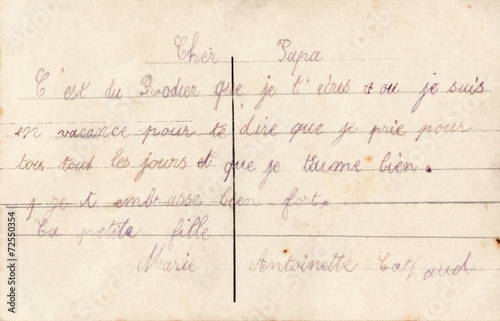 Cher Papa
C'est du Rodier que je t'écres + ou je suis
en vacance pour te dire que je prie pour
tois tout les jours et que je t'aime bien.
je t embrasse bien fort.
Ta petite fille
Marie Antoinette